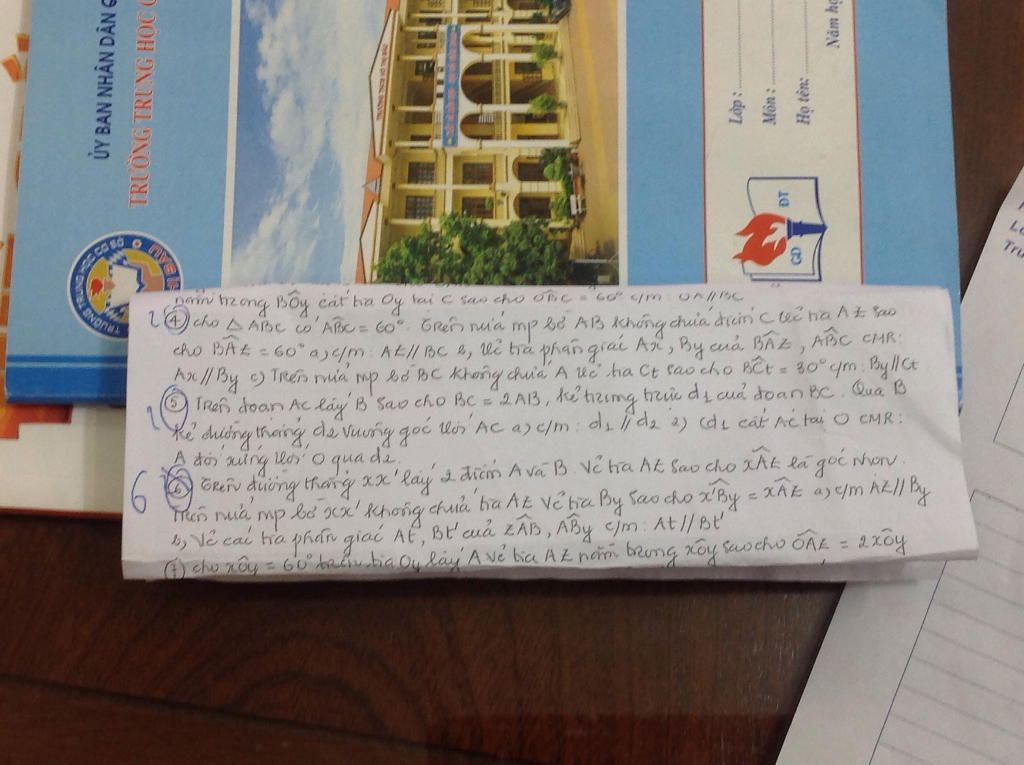 ỦY BAN NHÂN DÂN
TRƯỜNG TRUNG HỌC
TRƯỜNG TRUNG HỌC CƠ SỞ
Lớp :
Môn :
Họ tên:
Năm
GD ĐT
nằm trong BÔy cắt tia Oy tại C sao cho OBC = 60° c/m: OA//BC
④ cho △ ABC có ABC = 60°. Trên nửa mp bờ AB không chứa điểm C vẽ tia Az sao
cho BAz = 60° a, c/m: Az // BC b, vẽ tia phân giác Ax, By của BAz, ABC CMR:
Ax // By c) Trên nửa mp bờ BC không chứa A vẽ tia Ct sao cho BCt = 30° c/m: By//Ct
⑤ Trên đoạn AC lấy B sao cho BC = 2AB, kẻ trung trực d1 của đoạn BC. Qua B
kẻ đường thẳng d2 vuông góc với AC a, c/m: d1 // d2 2) (d1 cắt AC tại O CMR:
A đối xứng với O qua d2.
6 ⑥ Trên đường thẳng xx' lấy 2 điểm A và B. Vẽ tia Az sao cho xAz là góc nhọn.
Trên nửa mp bờ xx' không chứa tia Az vẽ tia By sao cho x'By = xAz a, c/m Az // By
b, Vẽ các tia phân giác At, Bt' của zAB, ABy c/m: At // Bt'
⑦ cho xÔy = 60° trên tia Oy lấy A vẽ tia Az nằm trong xÔy sao cho OAz = 2xÔy